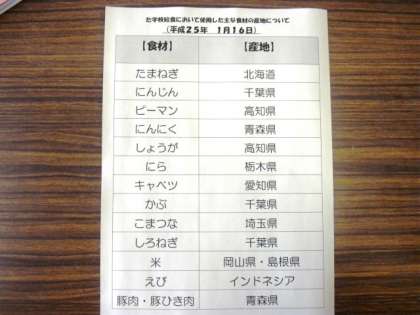 た学校給食において使用した主な食材の産地について
（平成25年　1月16日）
【食材】　【産地】
たまねぎ　北海道
にんじん　千葉県
ピーマン　高知県
にんにく　青森県
しょうが　高知県
にら　栃木県
キャベツ　愛知県
かぶ　千葉県
こまつな　埼玉県
しろねぎ　千葉県
米　岡山県・島根県
えび　インドネシア
豚肉・豚ひき肉　青森県